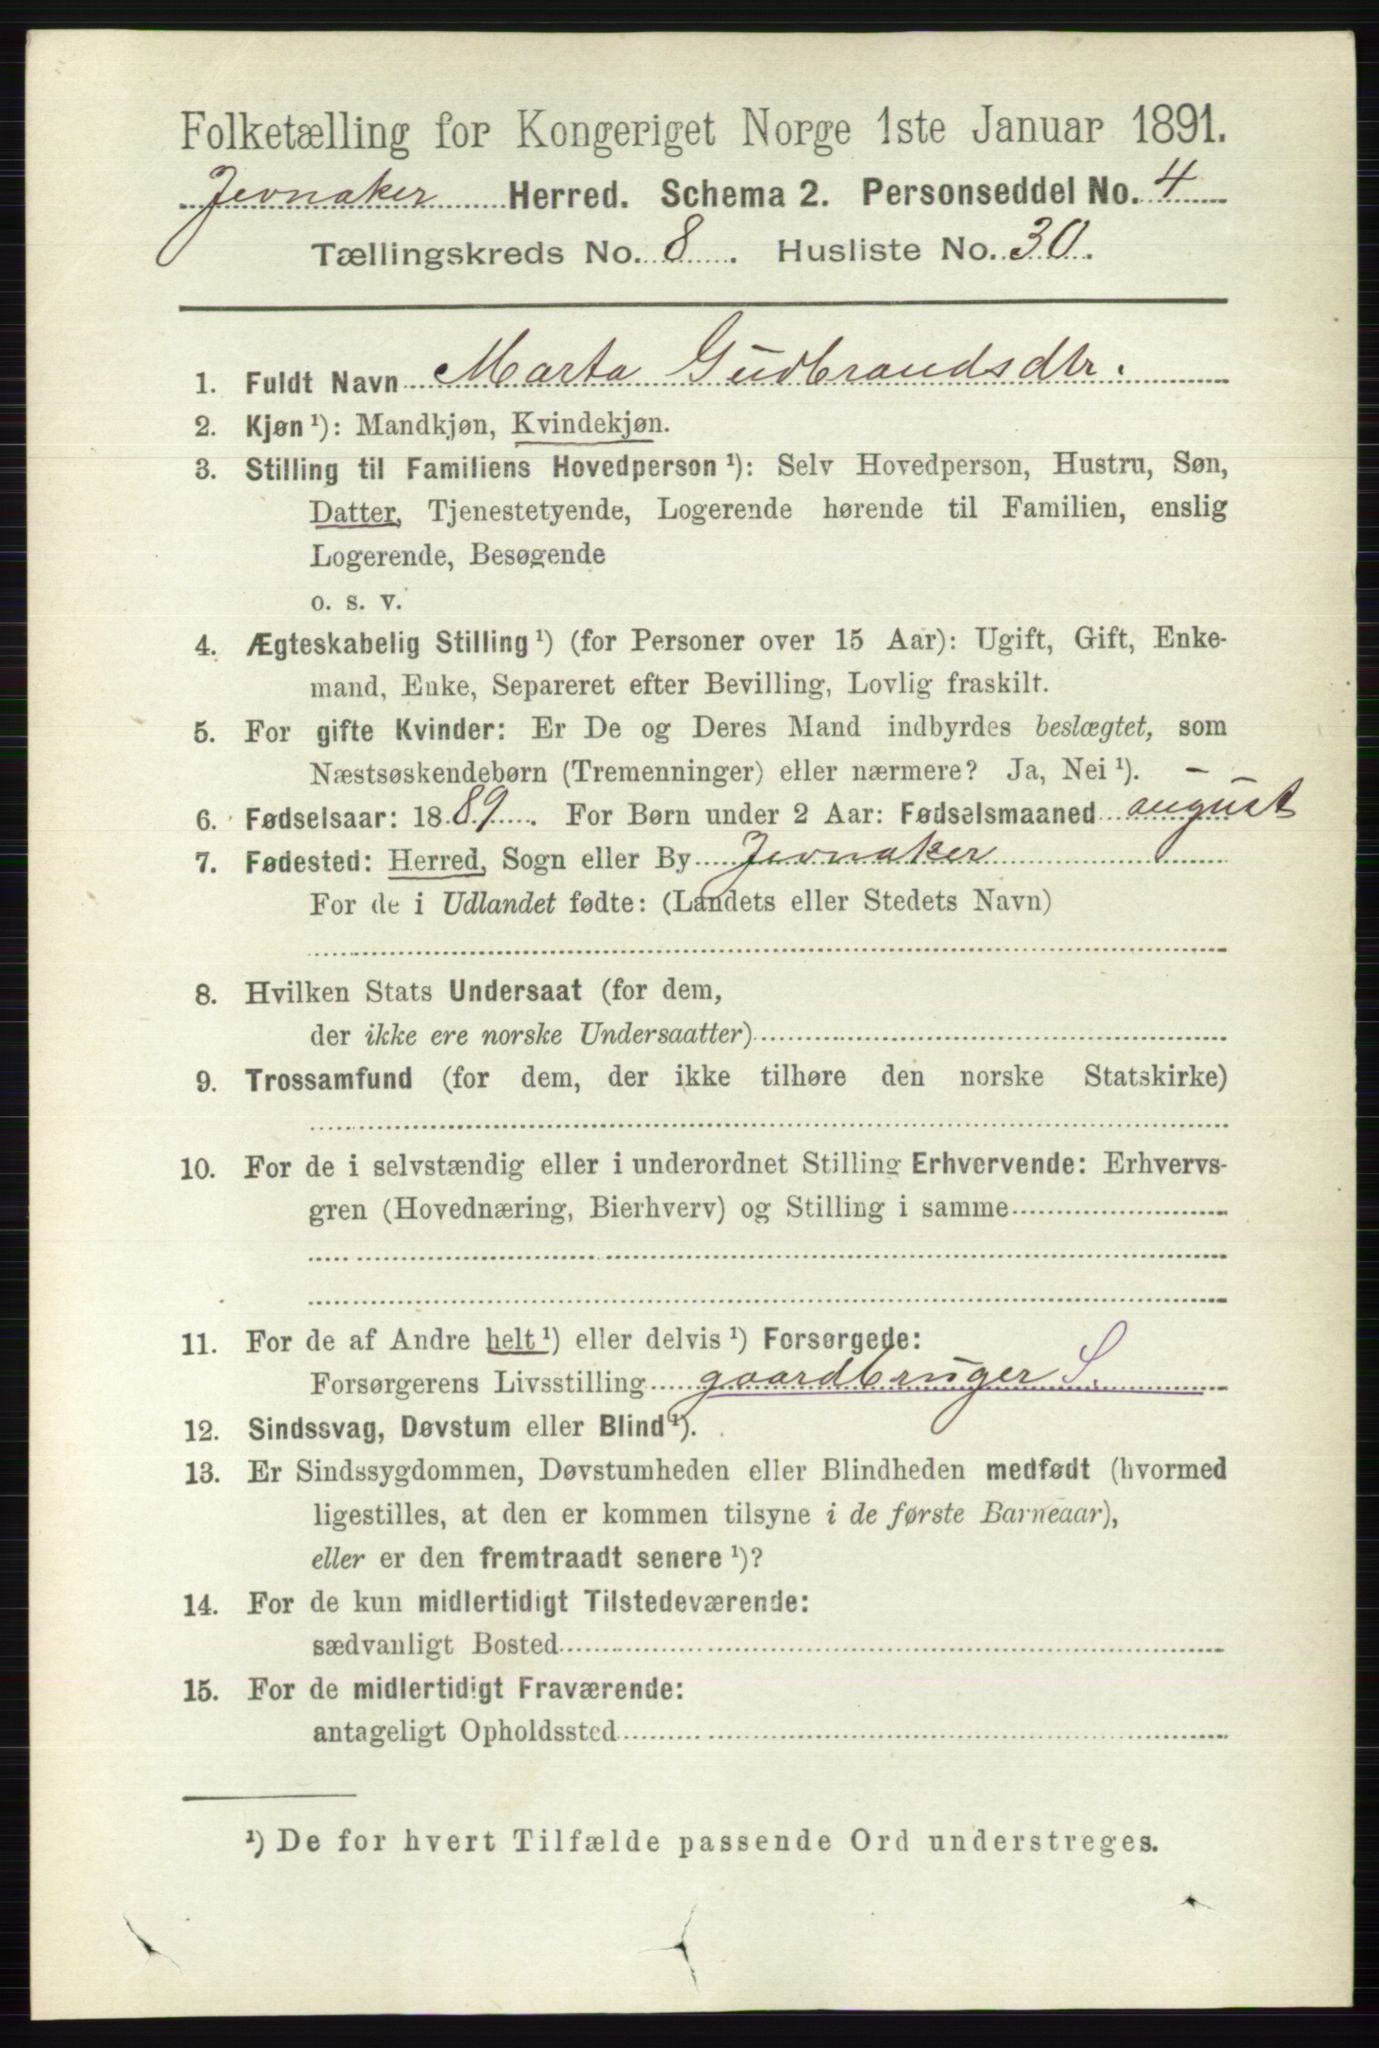 Folketælling for Kongeriget Norge 1ste Januar 1891.
Jevnaker Herred. Schema 2. Personseddel No. 4
Tællingskreds No. 8. Husliste No. 30.
1. Fuldt Navn Marta Gudbrandsdtr.
2. Kjøn ¹): Mandkjøn, Kvindekjøn.
3. Stilling til Familiens Hovedperson ¹): Selv Hovedperson, Hustru, Søn,
Datter, Tjenestetyende, Logerende hørende til Familien, enslig
Logerende, Besøgende
o. s. v.
4. Ægteskabelig Stilling ¹) (for Personer over 15 Aar): Ugift, Gift, Enke-
mand, Enke, Separeret efter Bevilling, Lovlig fraskilt.
5. For gifte Kvinder: Er De og Deres Mand indbyrdes beslægtet, som
Næstsøskendebørn (Tremenninger) eller nærmere? Ja, Nei ¹). –
6. Fødselsaar: 1889. For Børn under 2 Aar: Fødselsmaaned august
7. Fødested: Herred, Sogn eller By Jevnaker
For de i Udlandet fødte: (Landets eller Stedets Navn)
8. Hvilken Stats Undersaat (for dem,
der ikke ere norske Undersaatter)
9. Trossamfund (for dem, der ikke tilhøre den norske Statskirke)
10. For de i selvstændig eller i underordnet Stilling Erhvervende: Erhvervs-
gren (Hovednæring, Bierhverv) og Stilling i samme
11. For de af Andre helt ¹) eller delvis ¹) Forsørgede:
Forsørgerens Livsstilling gaardbruger S.
12. Sindssvag, Døvstum eller Blind ¹).
13. Er Sindssygdommen, Døvstumheden eller Blindheden medfødt (hvormed
ligestilles, at den er kommen tilsyne i de første Barneaar),
eller er den fremtraadt senere ¹)?
14. For de kun midlertidigt Tilstedeværende:
sædvanligt Bosted
15. For de midlertidigt Fraværende:
antageligt Opholdssted
¹) De for hvert Tilfælde passende Ord understreges.